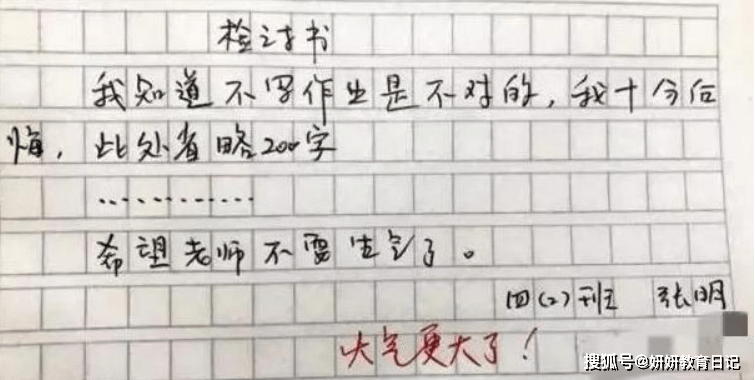 检讨书
我知道不写作业是不对的，我十分后
悔，此处省略200字
…………
希望老师不要生气了。
四(2)班 张明
火气更大了！
搜狐号@妍妍教育日记